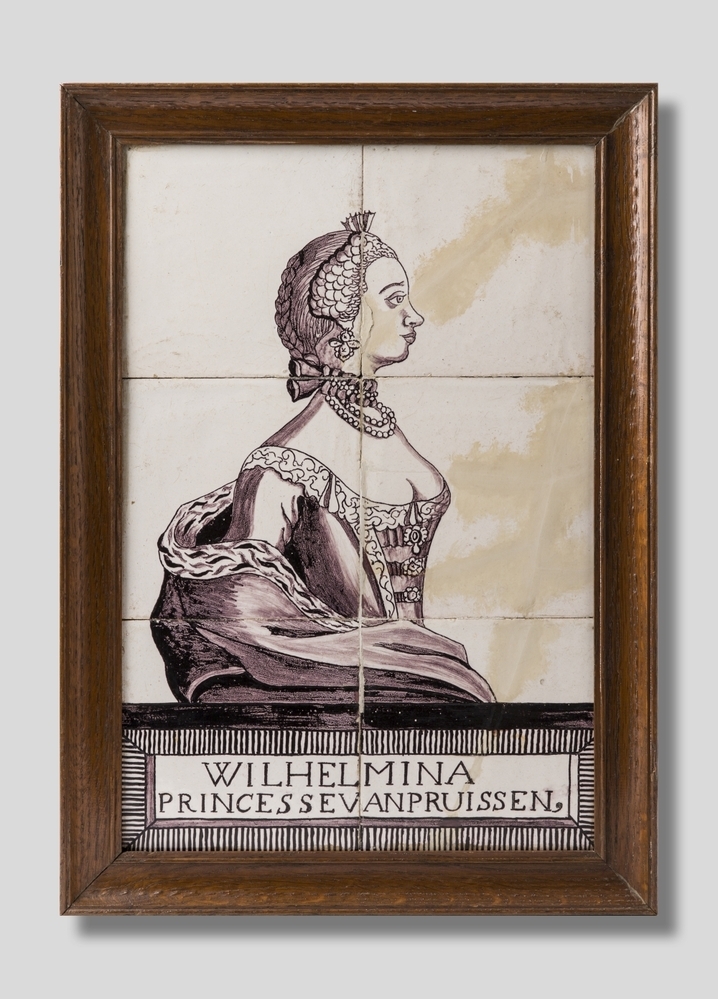 WILHELMINA
PRINCESSEVANPRUISSEN,